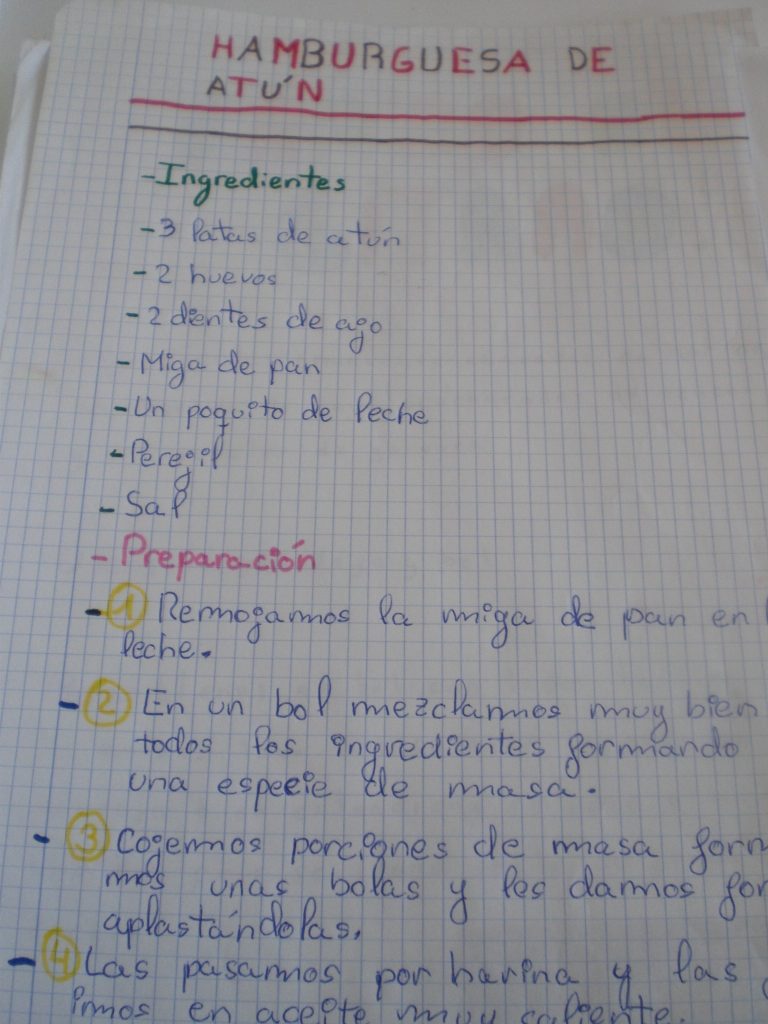 HAMBURGUESA DE
ATÚN
-Ingredientes
-3 latas de atún
-2 huevos
-2 dientes de ago
-Miga de pan
-Un poquito de leche
-Peregil
-Sal
-Preparación
-1 Remogamos la miga de pan en
leche.
-2 En un bol mezclamos muy bien
todos los ingredientes formando
una especie de masa.
-3 Cogemos porciones de masa form
mos unas bolas y les damos for
aplastándolas.
-4 Las pasamos por harina y las
imos en aceite muy caliente.